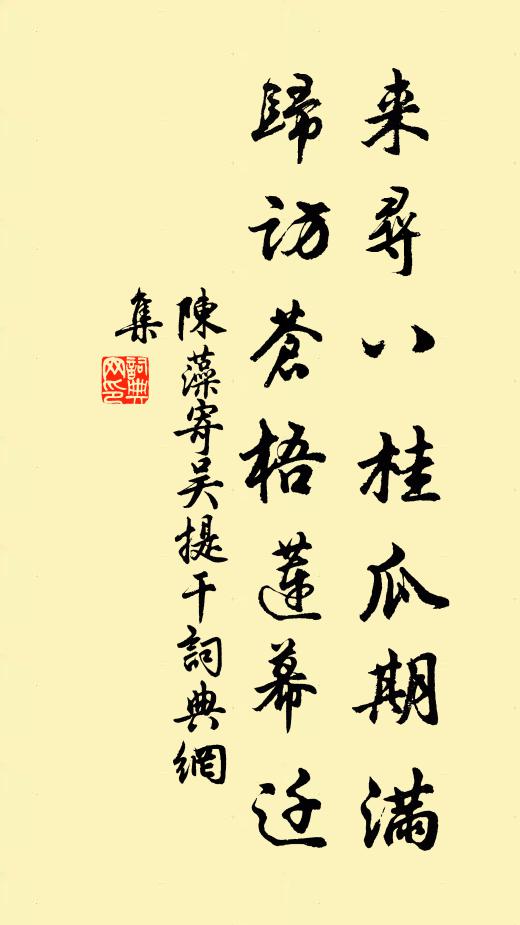 来尋八桂瓜期满
歸訪蒼梧蓮幕迁
陳藻寄吴提干詞典網
集
詞典
网印